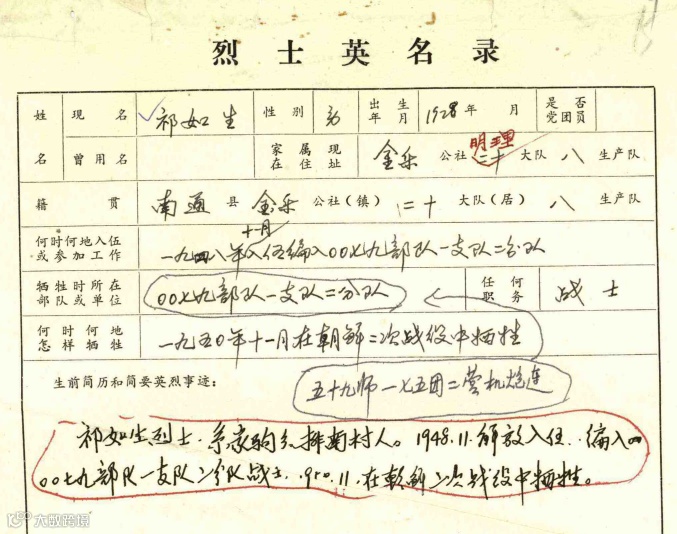 烈士英名录
姓名 现名 祁如生 性别 男 出生年月 1928年 月 是否党团员
曾用名 家属现在住址 金乐 公社 明理 二十 大队 八 生产队
籍贯 南通 县 金乐 公社(镇) 二十 大队(居) 八 生产队
十一月
何时何地入伍或参加工作 一九四八年入伍编入00七九部队一支队二分队
牺牲时所在部队或单位 00七九部队一支队二分队 任何职务 战士
何时何地怎样牺牲 一九五0年十一月在朝鲜二次战役中牺牲
生前简历和简要英烈事迹：
五十九师一七五团二营机炮连
祁如生烈士.系家驹乡排南村人。1948.11.解放入伍.编入
00七九部队一支队二分队战士.1950.11.在朝鲜二次战役中牺牲。
大数跨境